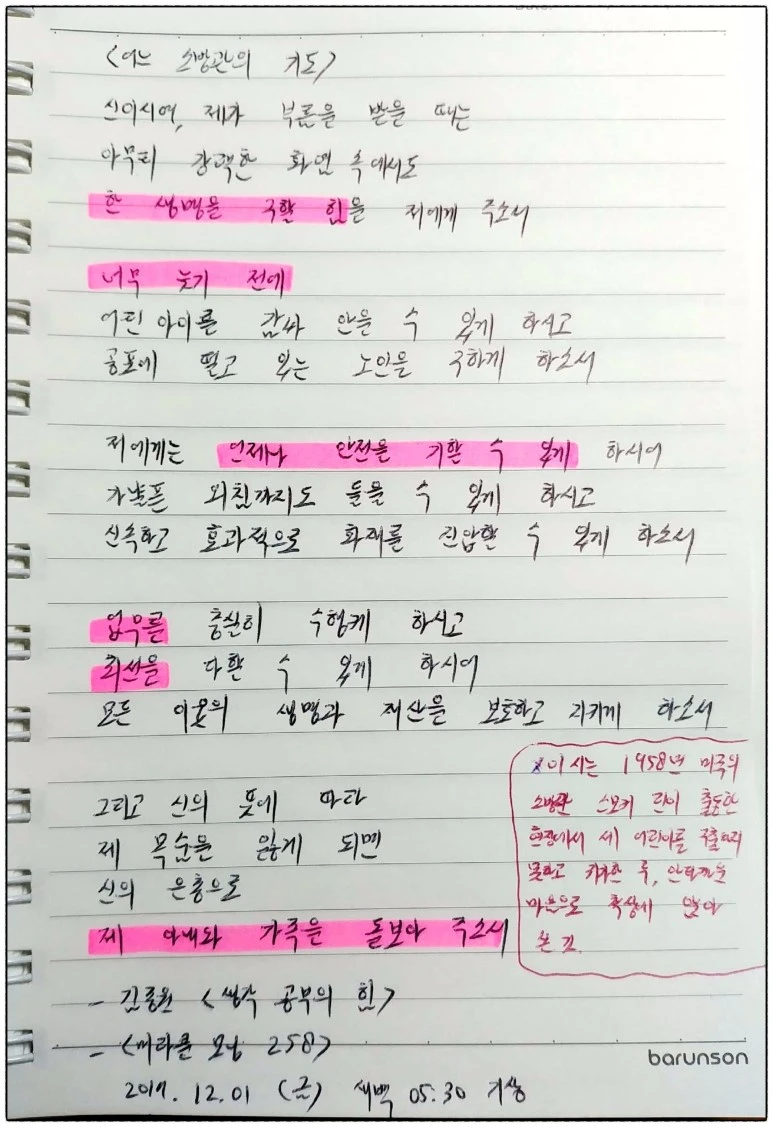 <어느 소방관의 기도>
신이시여, 제가 부름을 받을 때는
아무리 강력한 화염 속에서도
한 생명을 구할 힘을 저에게 주소서
너무 늦기 전에
어린 아이를 감싸 안을 수 있게 하시고
공포에 떨고 있는 노인을 구하게 하소서
저에게는 언제나 안전을 기할 수 있게 하시어
가냘픈 외침까지도 들을 수 있게 하시고
신속하고 효과적으로 화재를 진압할 수 있게 하소서
업무를 충실히 수행케 하시고
최선을 다할 수 있게 하시어
모든 이웃의 생명과 재산을 보호하고 지키게 하소서
그리고 신의 뜻에 따라
제 목숨을 잃게 되면
신의 은총으로
제 아내와 가족을 돌보아 주소서
*이 시는 1958년 미국의
소방관 스모키 린이 출동한
현장에서 세 어린이를 구출하지
못하고 귀가한 후, 안타까운
마음으로 책상에 앉아
쓴 것.
- 김종원 <생각 공부의 힘>
- <미라클 모닝 258>
2017. 12. 01 (금) 새벽 05:30 기상
barunson